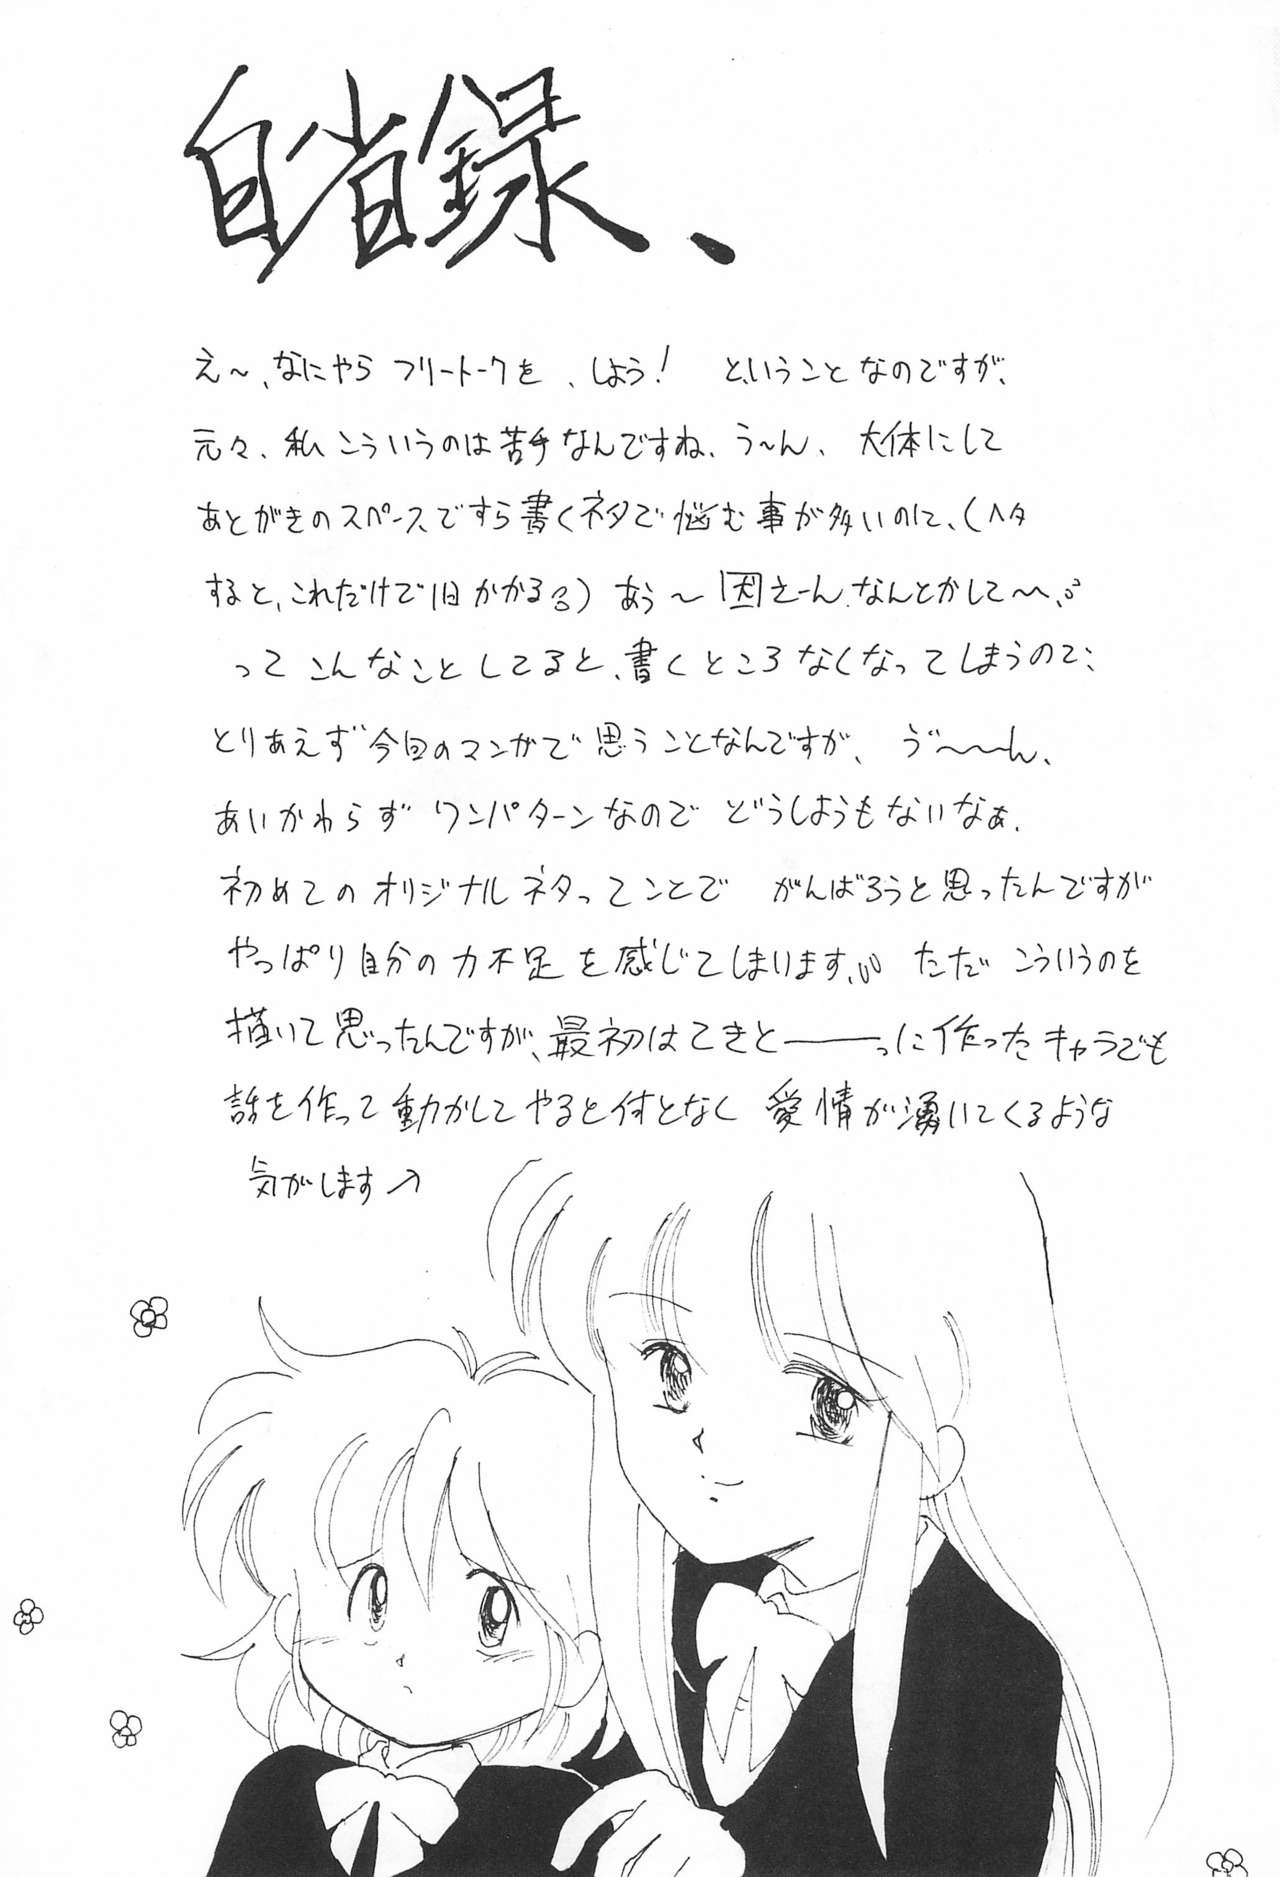 自省録、
え〜、なにやらフリートークを、しよう! ということなのですが、
元々、私こういうのは苦手なんですね、う〜ん、大体にして
あとがきのスペースですら書くネタで悩む事が多いのに、(ヘタ
すると、これだけで1日かかる) あぅ〜 えーん、なんとかして〜、
ってこんなことしてると、書くところなくなってしまうので、
とりあえず今回のマンガで思うことなんですが、ゔ〜〜ん、
あいかわらずワンパターンなのでどうしようもないなぁ、
初めてのオリジナルネタってことで がんばろうと思ったんですが
やっぱり自分の力不足を感じてしまいます、ただ こういうのを
描いて思ったんですが、最初はてきと―――っに作ったキャラでも
話を作って動かしてやると何となく愛情が湧いてくるような
気がします